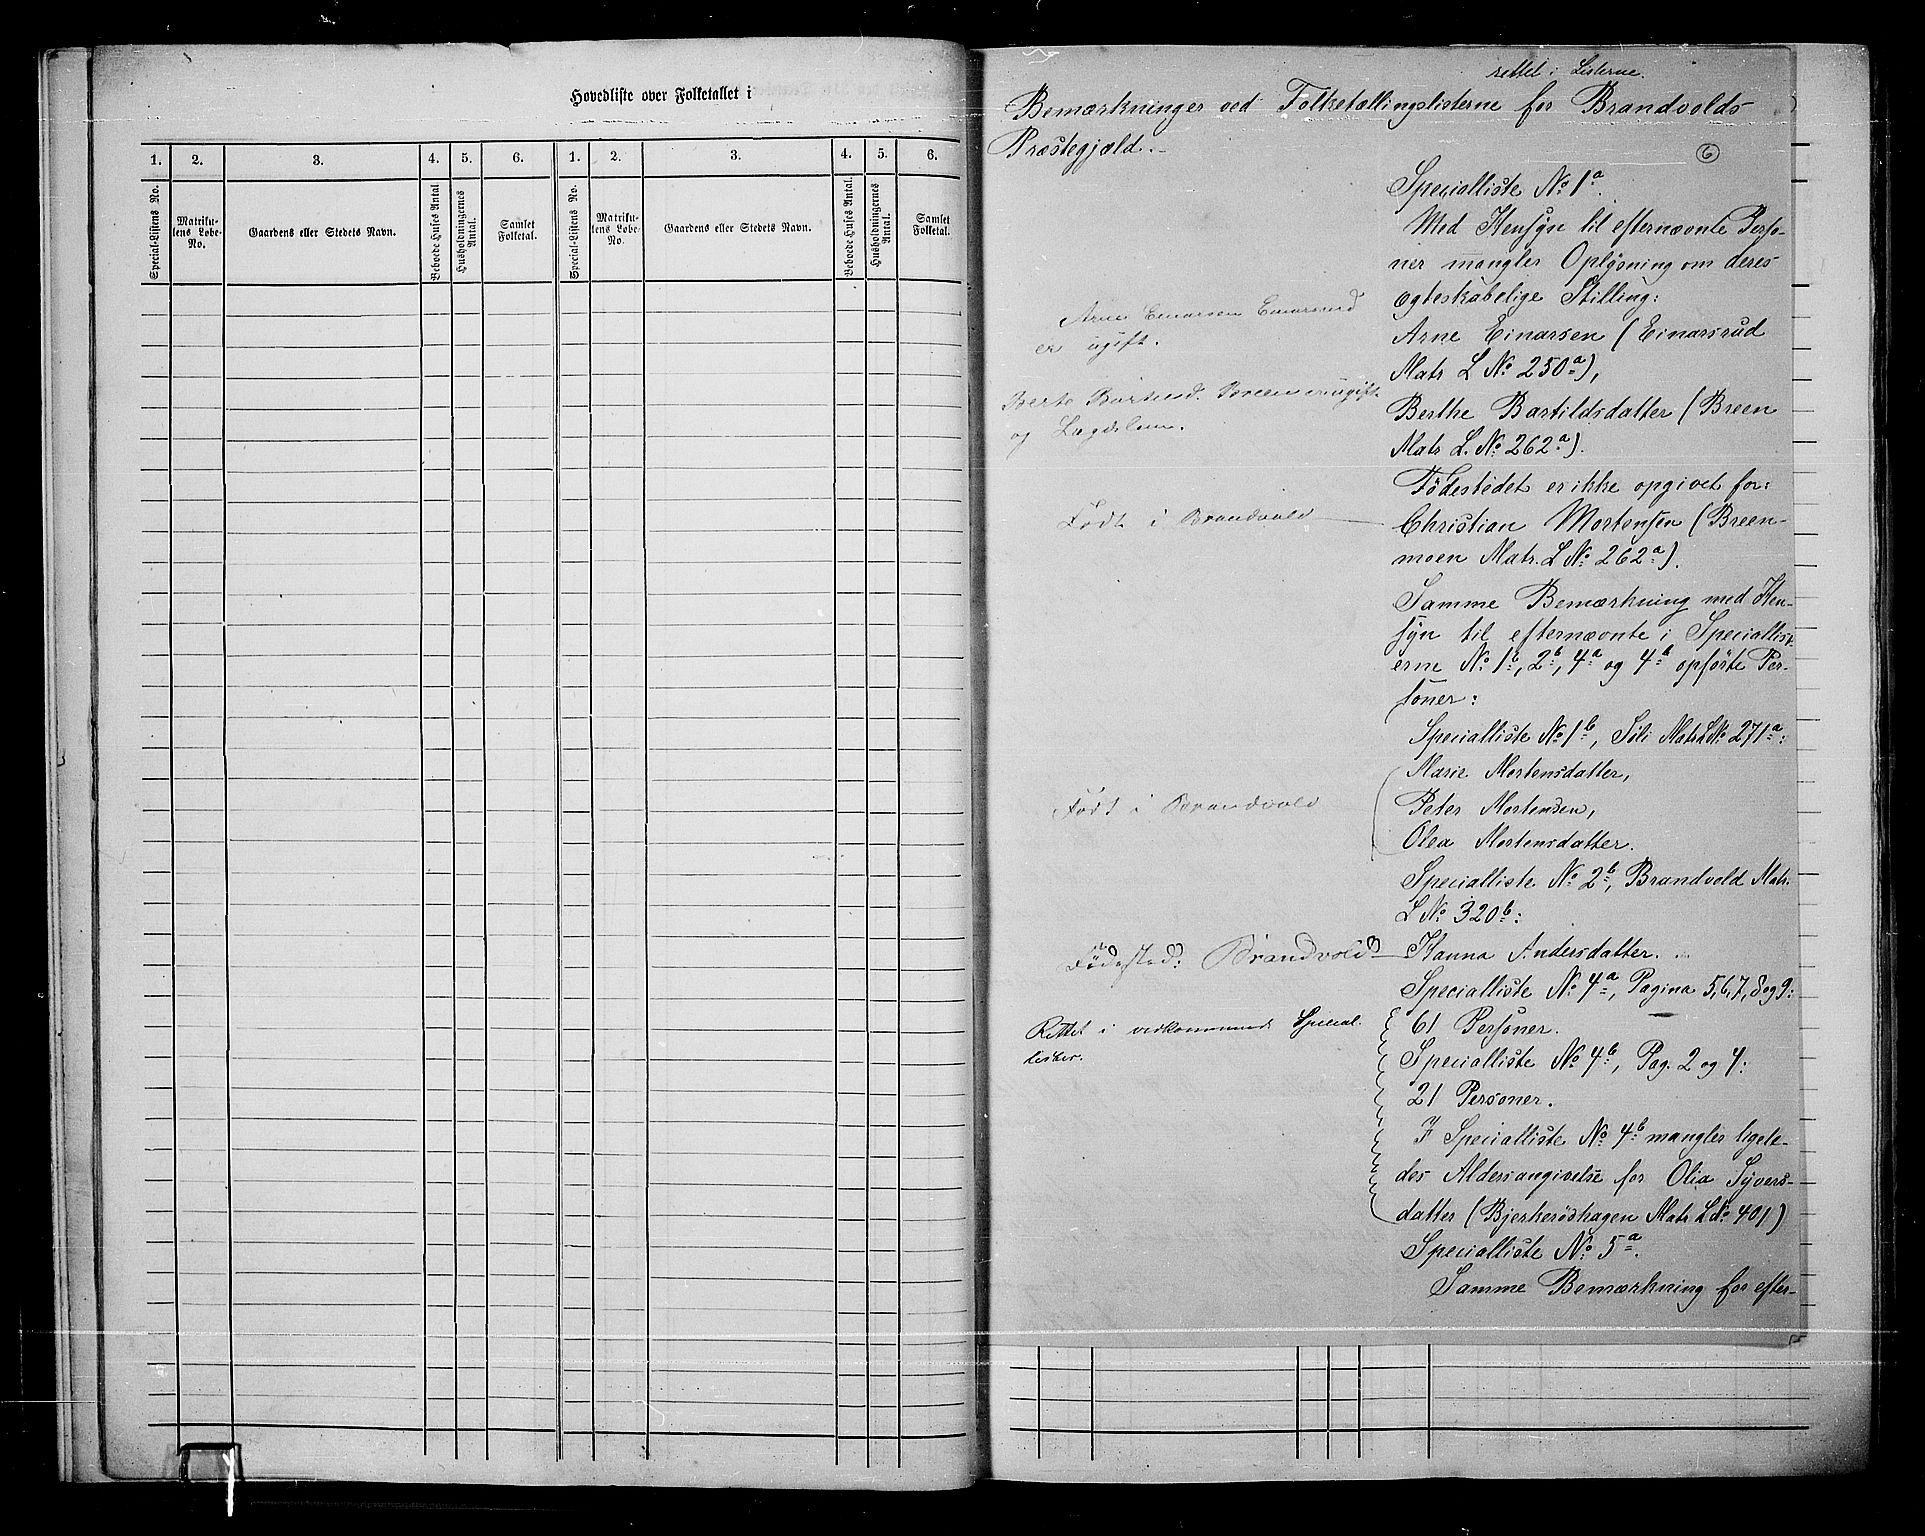 Hovedliste over Folketallet i
1. 2. 3. 4. 5. 6. 1. 2. 3. 4. 5. 6.
Special-Listens No.
Matriku-
lens Løbe-
No.
Gaardens eller Stedets Navn.
Beboede Huses Antal.
Husholdningernes
Antal.
Samlet
Folketal.
Special-Listens No.
Matriku-
lens Løbe-
No.
Gaardens eller Stedets Navn.
Beboede Huses Antal.
Husholdningernes
Antal.
Samlet
Folketal.
rettet i Listerne.
Bemærkninger ved Folketællingslisterne for Brandvolds
Præstegjæld.
6
Specialliste No 1a.
Med Hensyn til efternævnte Perso-
ner mangler Oplysning om deres
ægteskabelige Stilling:
Arne Einarsen Einarsrud
er ugift.
Arne Einarsen (Einarsrud
Matr L No 250a),
Berte Barthsd. Breen er ugift
og Lægdslem.
Berthe Bartildsdatter (Breen
Matr L. No 262a).
Fødestedet er ikke opgivet for:
Født i Brandvold
Christian Mortensen (Breen-
moen Matr. L No 262a).
Samme Bemærkning med Hen-
syn til efternævnte i Speciallist-
erne No 1b, 2b, 4a og 4b opførte Per-
soner:
Specialliste No 1b, Søli Matr L No 271a:
Marie Mortensdatter,
Født i Brandvold
Peter Mortensen,
Olea Mortensdatter.
Specialliste No 2b, Brandvold Matr.
L No 320b:
Fødested: Brandvold
Hanna Andersdatter.
Specialliste No 4a, Pagina 5,6,7,8 og 9:
Rettet i vedkommende Special-
lister.
61 Personer.
Specialliste No 4b, Pag. 2 og 4:
21 Personer.
I Specialliste No 4b mangler ligele-
des Aldersangivelse for Olia Syvers-
datter (Bjerkerødshagen Matr L No 401)
Specialliste No 5a.
Samme Bemærkning for efter-